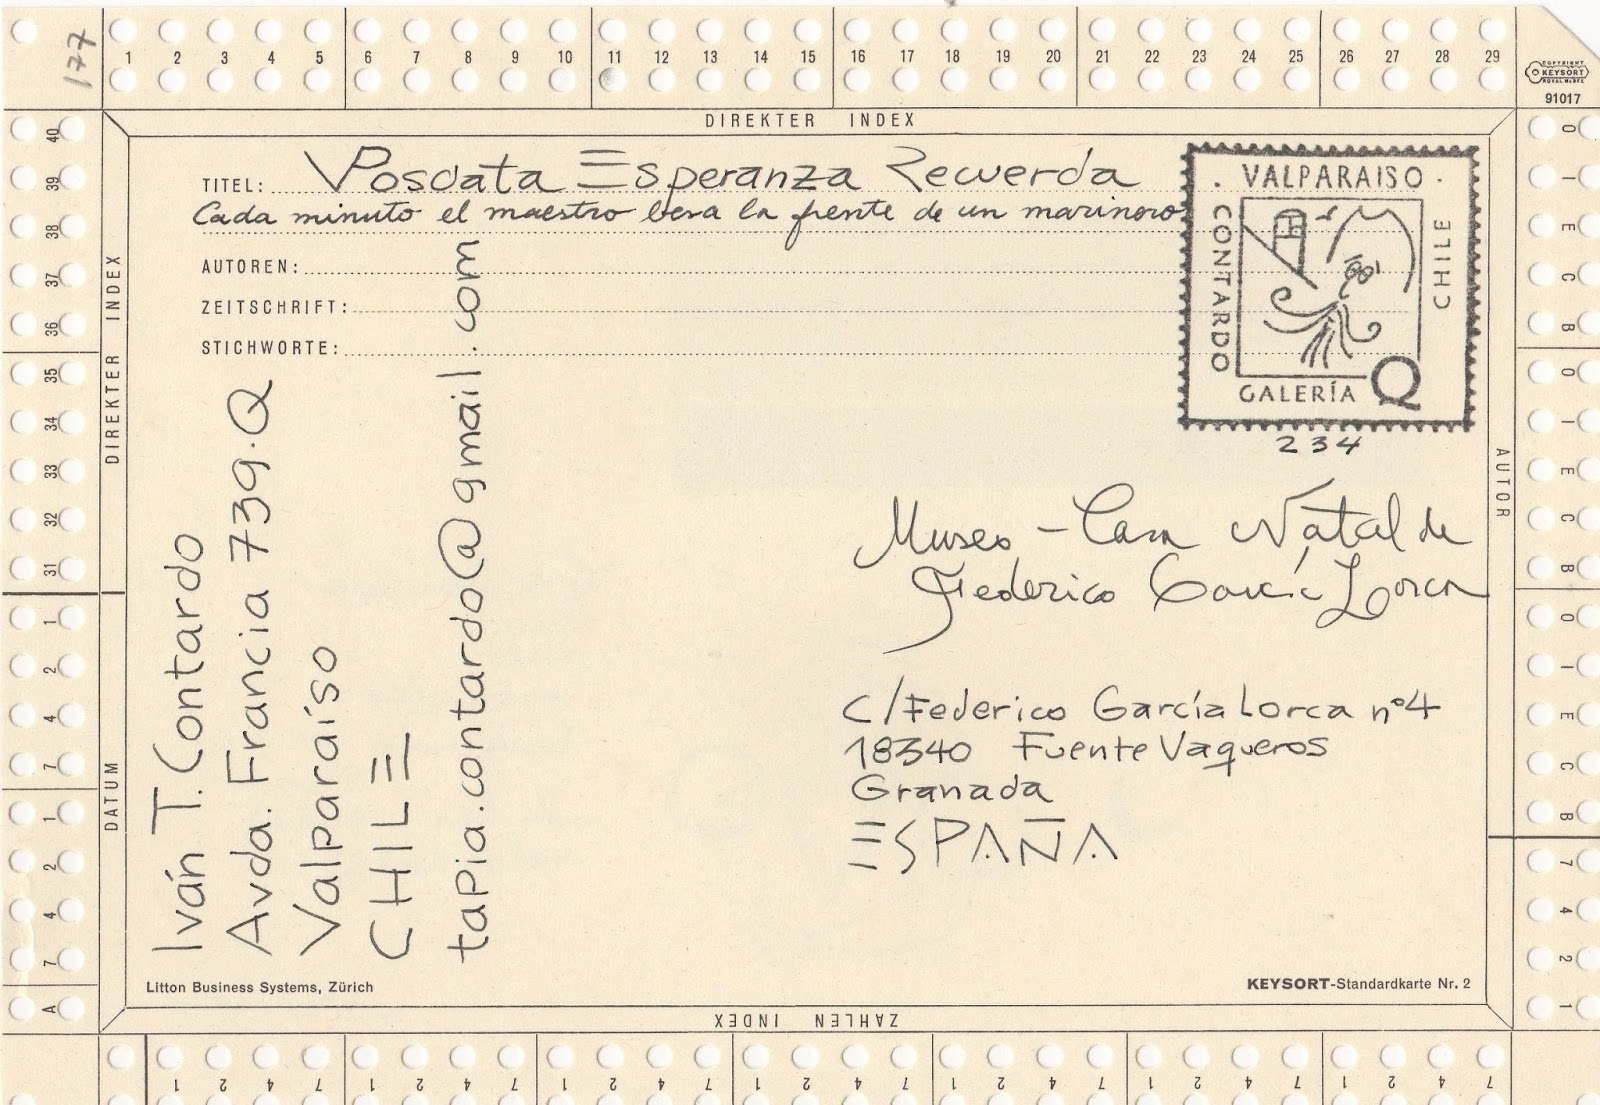 177
1 2 3 4 5 6 7 8 9 10 11 12 13 14 15 16 17 18 19 20 21 22 23 24 25 26 27 28 29
COPYRIGHT
KEYSORT
ROYAL McBEE
91017
DIREKTER INDEX
TITEL: Posdata Esperanza Recuerda
Cada minuto el maestro besa la frente de un marinero
AUTOREN:
ZEITSCHRIFT:
STICHWORTE:
· VALPARAISO ·
CONTARDO
CHILE
GALERÍA Q
234
Museo - Casa Natal de
Federico García Lorca
C/Federico García Lorca nº4
18340 Fuente Vaqueros
Granada
ESPAÑA
Iván T. Contardo
Avda. Francia 739·Q
Valparaíso
CHILE
tapia.contardo@gmail.com
Litton Business Systems, Zürich
KEYSORT-Standardkarte Nr. 2
DIREKTER INDEX
DATUM
AUTOR
ZAHLEN INDEX
40
39
38
37
36
35
34
33
32
31
1
2
4
7
1
2
4
7
A
O
I
E
C
B
O
I
E
C
B
O
I
E
C
B
7
4
2
1
1 2 4 7 1 2 4 7 1 2 4 7 1 2 4 7 1 2 4 7 1 2 4 7 1 2 4 7